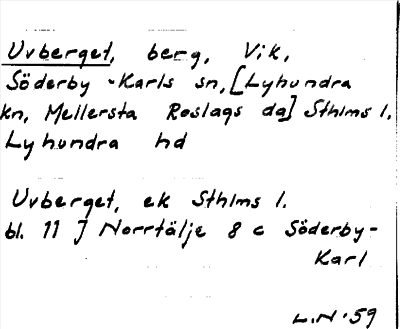 Uvberget, berg, Vik,
Söderby-Karls sn, [Lyhundra
kn, Mellersta Roslags dg] Sthlms l.
Lyhundra hd
Uvberget, ek Sthlms l.
bl. 11 J Norrtälje 8 c Söderby-
Karl
L.N. 59